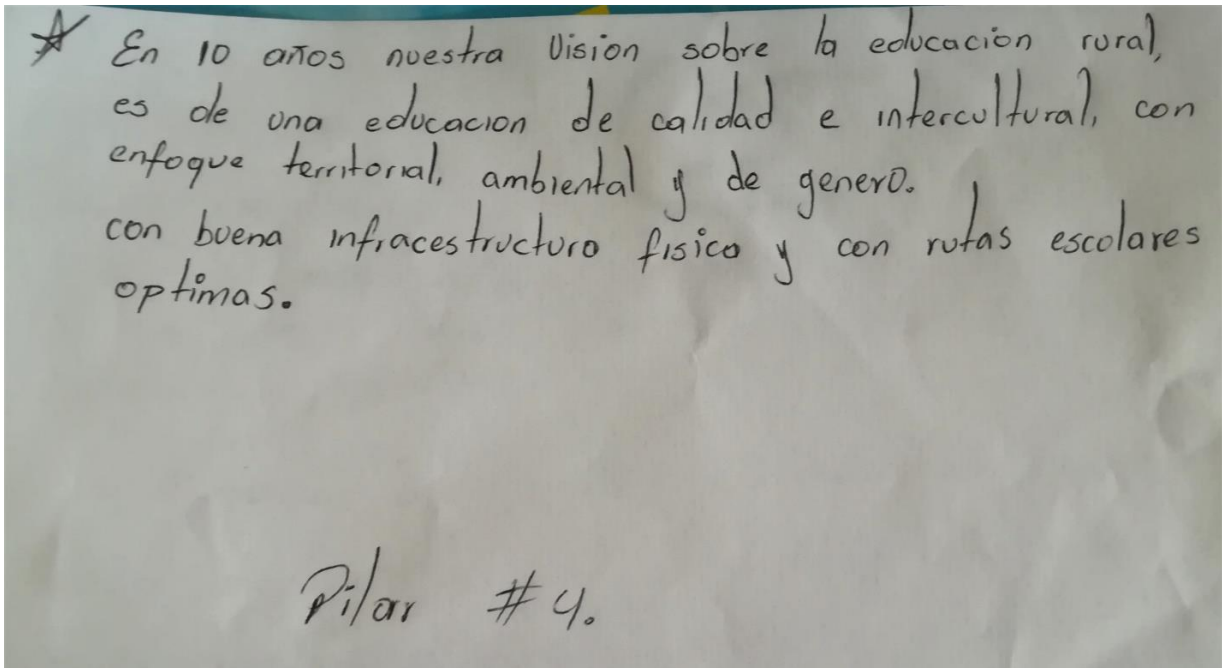 ☆ En 10 años nuestra Vision sobre la educacion rural,
es de una educacion de calidad e intercultural, con
enfoque territorial, ambiental y de genero.
con buena infracestructura fisica y con rutas escolares
optimas.
Pilar #4.